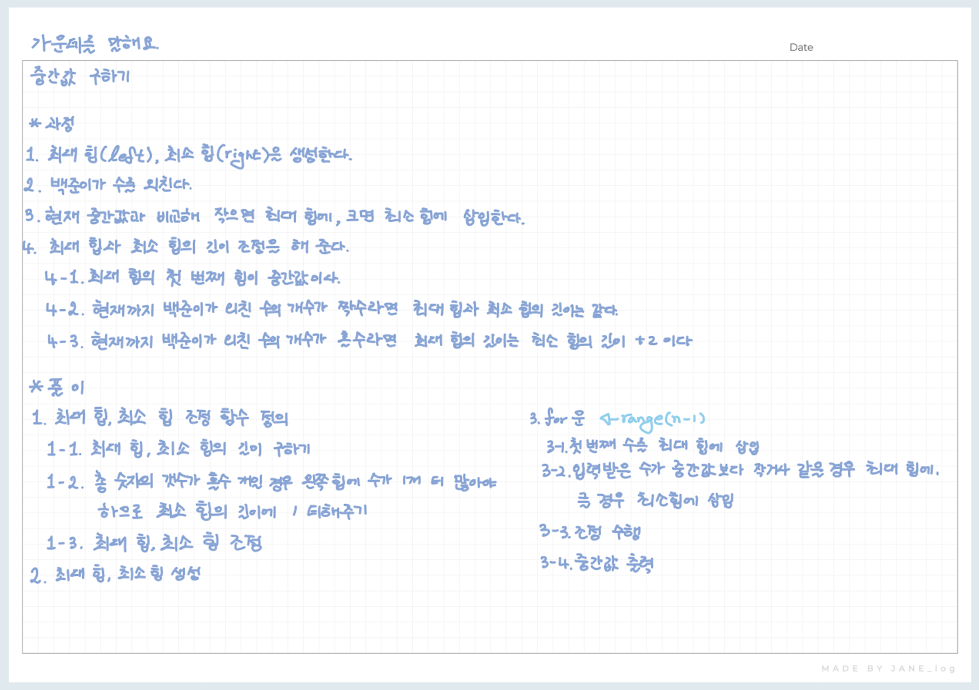 가운데를 말해요
Date
중간값 구하기
* 과정
1. 최대 힙(left), 최소 힙(right)을 생성한다.
2. 백준이가 수를 외친다.
3. 현재 중간값과 비교해 작으면 최대 힙에, 크면 최소 힙에 삽입한다.
4. 최대 힙과 최소 힙의 길이 조정을 해 준다.
4-1. 최대 힙의 첫 번째 힙이 중간값이다.
4-2. 현재까지 백준이가 외친 수의 개수가 짝수라면 최대 힙과 최소 힙의 길이는 같다.
4-3. 현재까지 백준이가 외친 수의 개수가 홀수라면 최대 힙의 길이는 최소 힙의 길이 +2 이다
* 풀이
1. 최대 힙, 최소 힙 조정 함수 정의
1-1. 최대 힙, 최소 힙의 길이 구하기
1-2. 총 숫자의 갯수가 홀수 개인 경우 왼쪽 힙에 수가 1개 더 많아야
하므로 최소 힙의 길이에 1 더해주기
1-3. 최대 힙, 최소 힙 조정
2. 최대 힙, 최소 힙 생성
3. for 문 <-range(n-1)
3-1. 첫 번째 수를 최대 힙에 삽입
3-2. 입력받은 수가 중간값보다 작거나 같은 경우 최대 힙에,
큰 경우 최소힙에 삽입
3-3. 조정 수행
3-4. 중간값 출력
MADE BY JANE_log